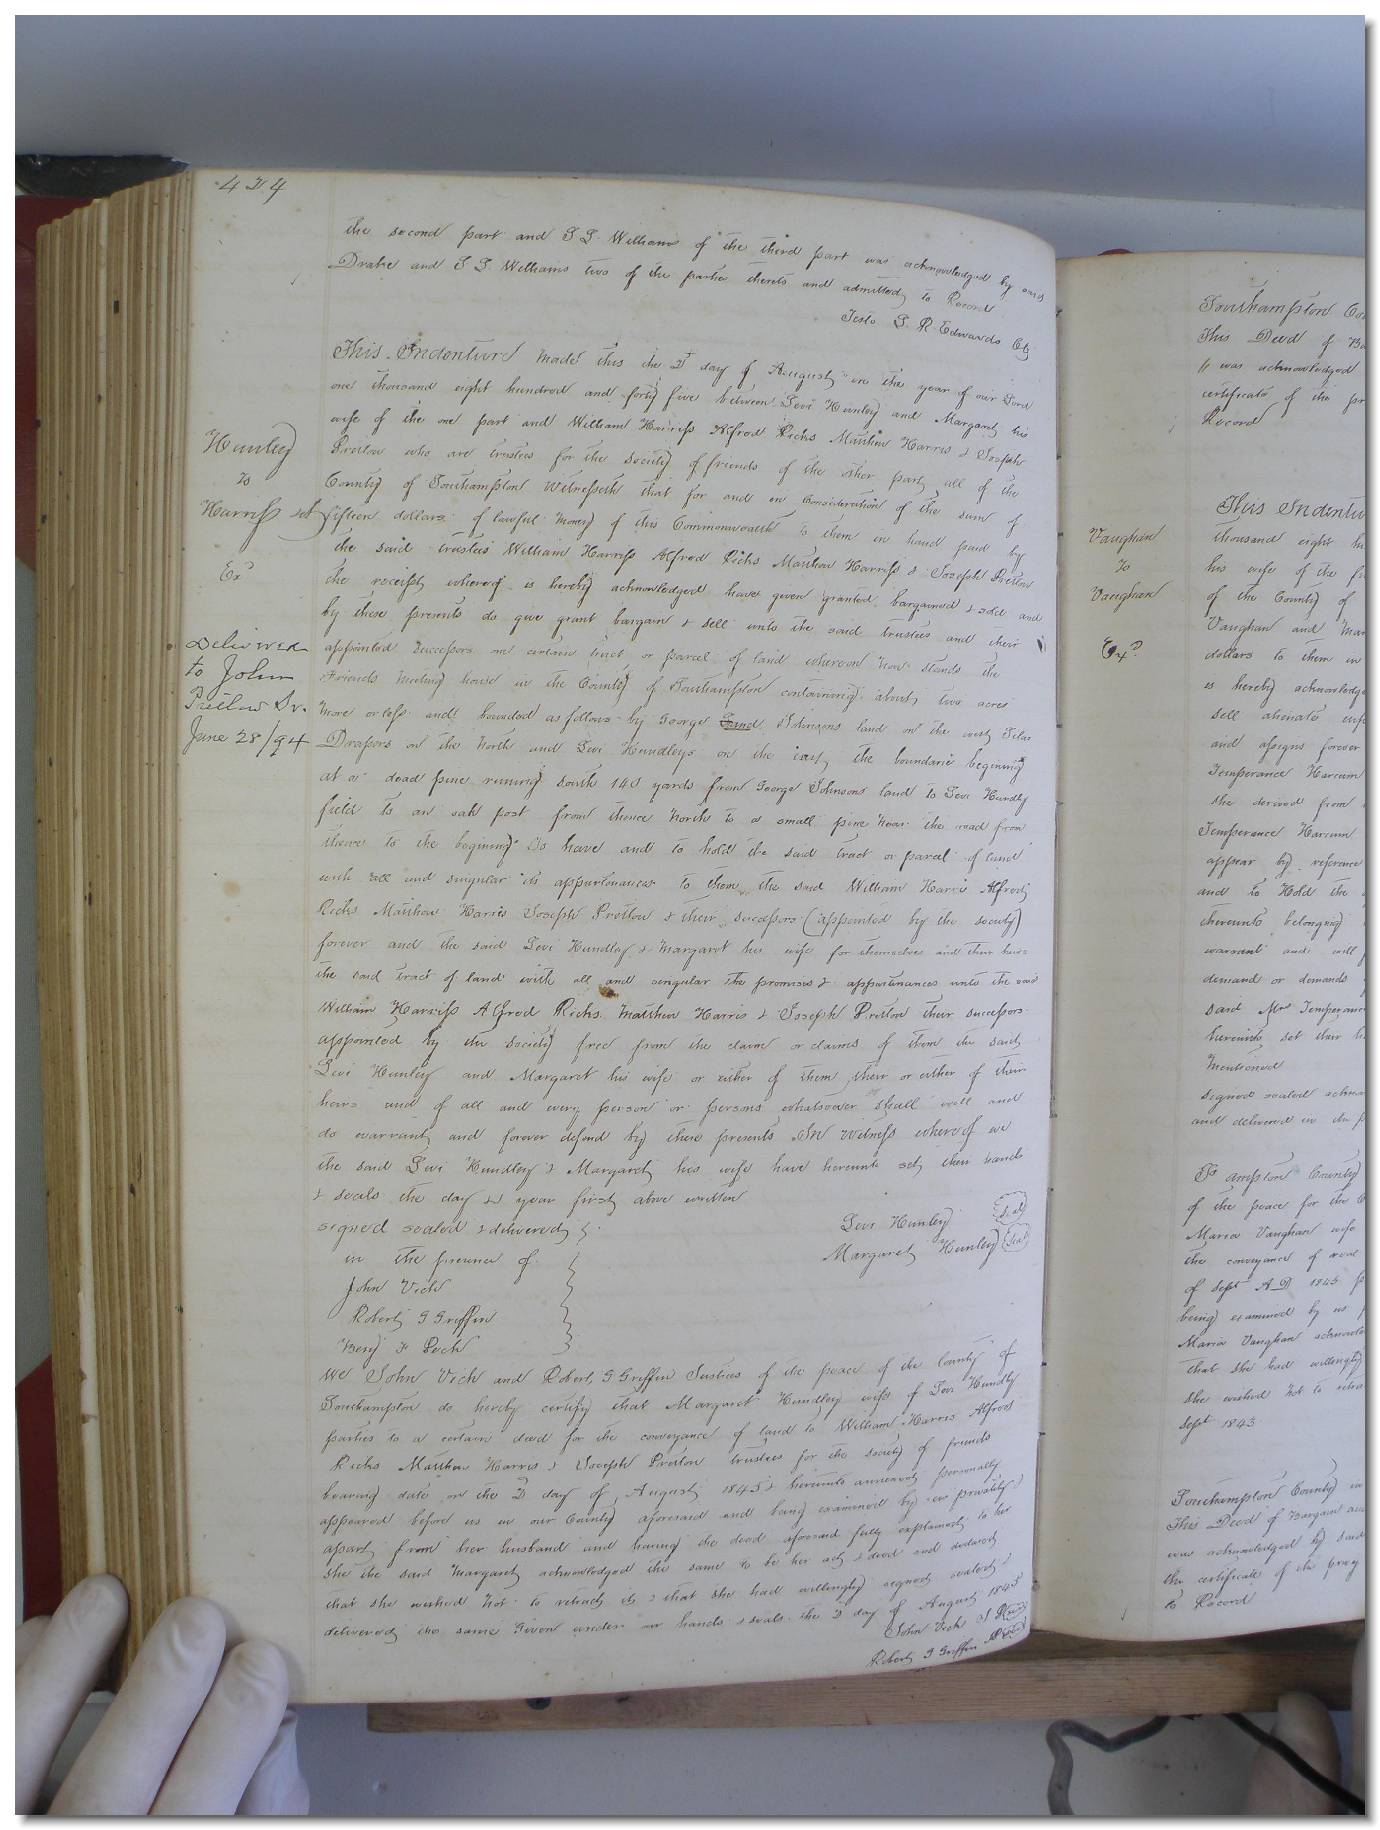 424
the second part and S S. Williams of the third part was acknowledged by said
Drake and S S. Williams two of the parties thereto and admitted to Record
Teste L R Edwards Clk
This Indenture made this the 2d day of August in the year of our Lord
one thousand eight hundred and forty five between Levi Hunley and Margaret his
wife of the one part and William Harriss Alfred Ricks Matthew Harris & Joseph
Pretlow who are trustees for the society of friends of the other part all of the
County of Southampton Witnesseth that for and in Consideration of the sum of
fifteen dollars of lawful money of this Commonwealth to them in hand paid by
the said trustees William Harriss Alfred Ricks Matthew Harriss & Joseph Pretlow
the receipt whereof is hereby acknowledged have given granted bargained & sold and
by these presents do give grant bargain & sell unto the said trustees and their
appointed successors one certain tract or parcel of land whereon now stands the
Friends meeting house in the County of Southampton containing about two acres
more or less and bounded as follows by George Land Johnsons land on the west Silas
Drapers on the North and Levi Hundleys on the east, the boundarie begining
at a dead pine runing south 140 yards from George Johnsons land to Levi Hundly
field to an oak post from thence North to a small pine near the road from
thence to the begining To have and to hold the said tract or parcel of land
with all and singular its appurtenances to them the said William Harris Alfred
Ricks Matthew Harris Joseph Pretlow & their successors (appointed by the society)
forever and the said Levi Hundley & Margaret his wife for themselves and their heirs
the said tract of land with all and singular the premises & appurtenances unto the said
William Harriss Alfred Ricks Matthew Harris & Joseph Pretlow their successors
appointed by the society free from the claim or claims of them the said
Levi Hunley and Margaret his wife or either of them their or either of their
heirs and of all and every person or persons whatsoever shall will and
do warrant and forever defend by these presents In Witness whereof we
the said Levi Hundley & Margaret his wife have hereunto set their hands
& seals the day & year first above written
signed sealed & delivered
in the presence of
John Vick
Robert G Griffin
Benj F Peck
Levi Hunley Seal
Margaret Hunley Seal
We John Vick and Robert G Griffin Justices of the peace of the County of
Southampton do hereby certify that Margaret Hundley wife of Levi Hundly
parties to a certain deed for the conveyance of land to William Harris Alfred
Ricks Matthew Harris & Joseph Pretlow trustees for the society of friends
bearing date on the 2 day of August 1845 & hereunto annexed personally
appeared before us in our County aforesaid and being examined by us privately
apart from her husband and having the deed aforesaid fully explained to her
she the said Margaret acknowledged the same to be her act & deed and declared
that she wished not to retract it & that she had willingly signed sealed &
delivered the same Given under our hands & seals the 2 day of August 1845
John Vick J P Seal
Robert G Griffin JP Seal
Hunley
to
Harriss et al
Exd
Delivered
to John
Pretlow Sr.
June 28/94
Southampton Co
This Deed of Ba
was acknowledged
certificate of the pr
Record
Vaughan
To
Vaughan
Exd
This Indentu
thousand eight hu
his wife of the
of the County of
Vaughan and Mar
dollars to them in
is hereby acknowledge
sell alienate
and assigns forever
Temperance Harcum
the derived from
Temperance Harcum
appear by reference
and to Hold the
thereunto belonging
warrant and will
demand or demands
said Mr Temperance
hereunto set their h
Mentioned
signed sealed acknow
and delivered in the p
County
of the peace for the C
Maria Vaughan wife
the conveyance of real
of Sept AD 1845
being examined by us
Maria Vaughan acknowle
that she had willingly
she wished not to retra
Sept 1845
Southampton County in
This Deed of Bargain and
was acknowledged by said
the certificate of the
to Record